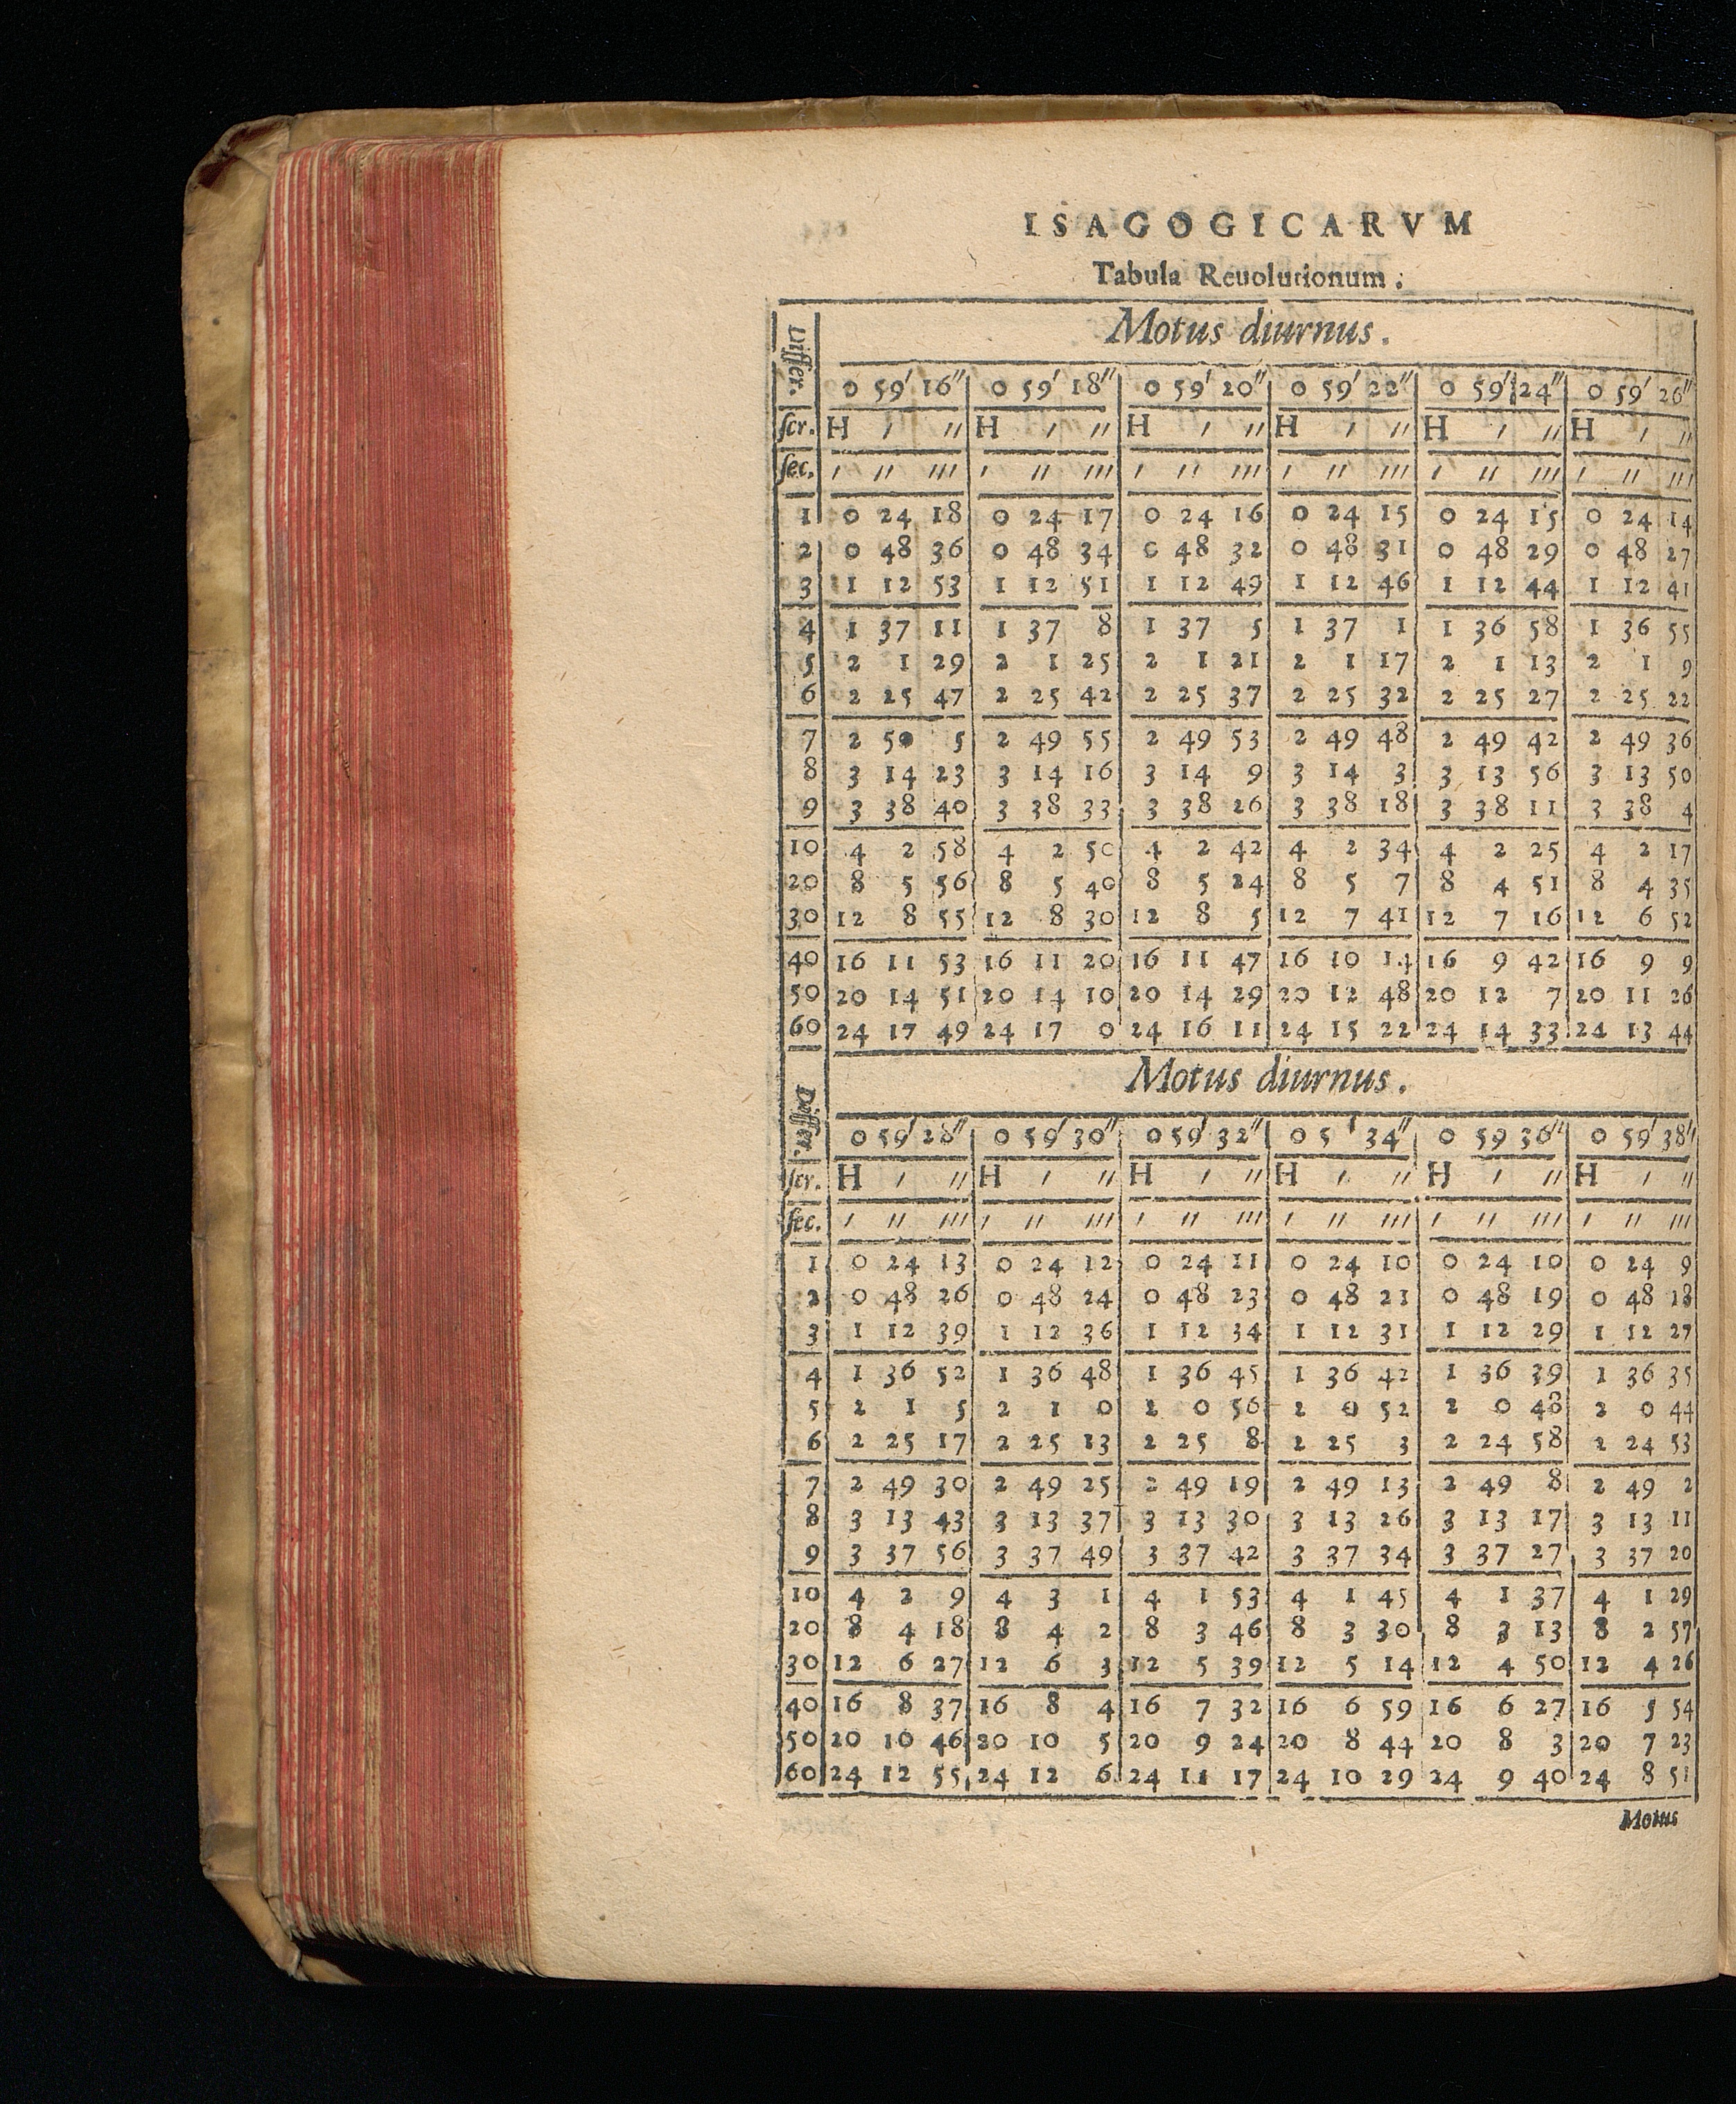 ISAGOGICARVM
Tabula Reuolutionum.
Differ. Motus diurnus.
0 59′ 16″ 0 59′ 18″ 0 59′ 20″ 0 59′ 22″ 0 59′ 24″ 0 59′ 26″
ſcr. H ′ ″ H ′ ″ H ′ ″ H ′ ″ H ′ ″ H ′ ″
ſec. ′ ″ ‴ ′ ″ ‴ ′ ″ ‴ ′ ″ ‴ ′ ″ ‴ ′ ″ ‴
1 0 24 18 0 24 17 0 24 16 0 24 15 0 24 15 0 24 14
2 0 48 36 0 48 34 0 48 32 0 48 31 0 48 29 0 48 27
3 1 12 53 1 12 51 1 12 49 1 12 46 1 12 44 1 12 41
4 1 37 11 1 37 8 1 37 5 1 37 1 1 36 58 1 36 55
5 2 1 29 2 1 25 2 1 21 2 1 17 2 1 13 2 1 9
6 2 25 47 2 25 42 2 25 37 2 25 32 2 25 27 2 25 22
7 2 50 5 2 49 55 2 49 53 2 49 48 2 49 42 2 49 36
8 3 14 23 3 14 16 3 14 9 3 14 3 3 13 56 3 13 50
9 3 38 40 3 38 33 3 38 26 3 38 18 3 38 11 3 38 4
10 4 2 58 4 2 50 4 2 42 4 2 34 4 2 25 4 2 17
20 8 5 56 8 5 40 8 5 24 8 5 7 8 4 51 8 4 35
30 12 8 55 12 8 30 12 8 5 12 7 41 12 7 16 12 6 52
40 16 11 53 16 11 20 16 11 47 16 10 14 16 9 42 16 9 9
50 20 14 51 20 14 10 20 14 29 20 12 48 20 12 7 20 11 26
60 24 17 49 24 17 0 24 16 11 24 15 22 24 14 33 24 13 44
Differ. Motus diurnus.
0 59′ 28″ 0 59′ 30″ 0 59′ 32″ 0 5 ′ 34″ 0 59 36″ 0 59′ 38″
ſcr. H ′ ″ H ′ ″ H ′ ″ H ′ ″ H ′ ″ H ′ ″
ſec. ′ ″ ‴ ′ ″ ‴ ′ ″ ‴ ′ ″ ‴ ′ ″ ‴ ′ ″ ‴
1 0 24 13 0 24 12 0 24 11 0 24 10 0 24 10 0 24 9
2 0 48 26 0 48 24 0 48 23 0 48 21 0 48 19 0 48 18
3 1 12 39 1 12 36 1 12 34 1 12 31 1 12 29 1 12 27
4 1 36 52 1 36 48 1 36 45 1 36 42 1 36 39 1 36 35
5 2 1 5 2 1 0 2 0 56 2 0 52 2 0 48 2 0 44
6 2 25 17 2 25 13 2 25 8 2 25 3 2 24 58 2 24 53
7 2 49 30 2 49 25 2 49 19 2 49 13 2 49 8 2 49 2
8 3 13 43 3 13 37 3 13 30 3 13 26 3 13 17 3 13 11
9 3 37 56 3 37 49 3 37 42 3 37 34 3 37 27 3 37 20
10 4 2 9 4 3 1 4 1 53 4 1 45 4 1 37 4 1 29
20 8 4 18 8 4 2 8 3 46 8 3 30 8 3 13 8 2 57
30 12 6 27 12 6 3 12 5 39 12 5 14 12 4 50 12 4 26
40 16 8 37 16 8 4 16 7 32 16 6 59 16 6 27 16 5 54
50 20 10 46 20 10 5 20 9 24 20 8 44 20 8 3 20 7 23
60 24 12 55 24 12 6 24 11 17 24 10 29 24 9 40 24 8 51
Motus